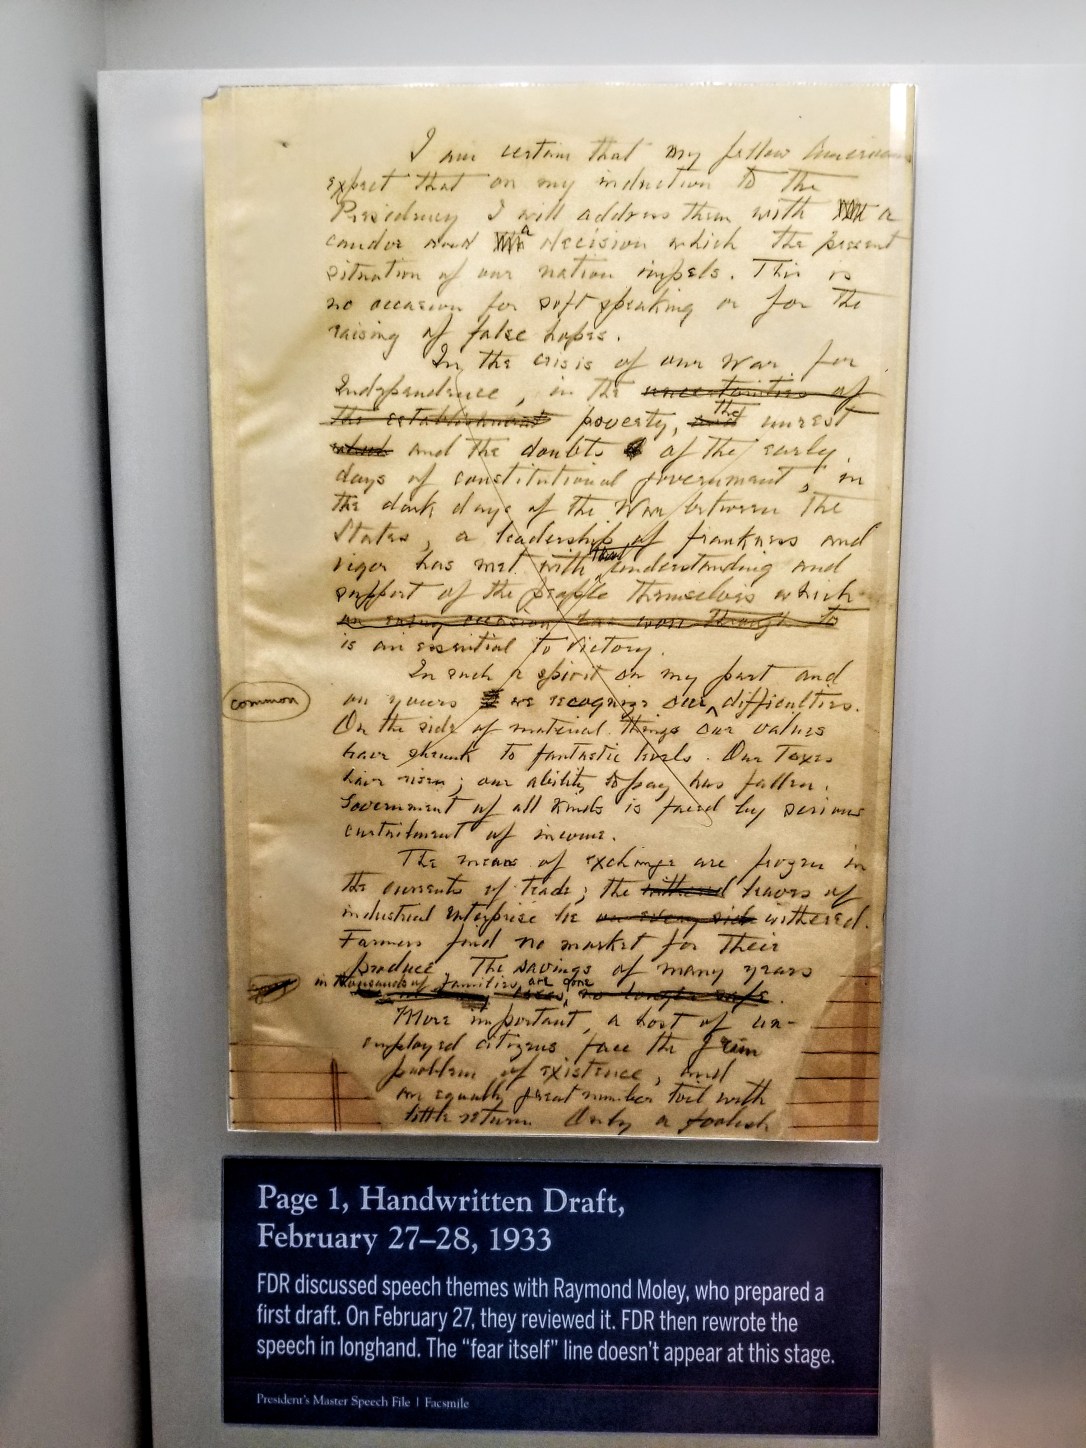 I am certain that my fellow Americans
expect that on my induction to the
Presidency I will address them with a
candor and a decision which the present
situation of our nation impels. This is
no occasion for soft speaking or for the
raising of false hopes.
In the crisis of our War for
Independence, in the uncertainties of
the establishment poverty, the unrest
and the doubts of the early
days of constitutional government, in
the dark days of the War between the
States, a leadership of frankness and
vigor has met with that understanding and
support of the people themselves which
on every occasion has won through to
is an essential to victory.
In such a spirit on my part and
common
on yours we recognize our difficulties.
On the side of material things our values
have shrunk to fantastic levels. Our Taxes
have risen; our ability to pay has fallen.
Government of all kinds is faced by serious
curtailment of income.
The means of exchange are frozen in
the currents of trade; the withered leaves of
industrial enterprise lie on every side withered.
Farmers find no market for their
produce. The savings of many years
in thousands of families, are gone
no longer safe.
More important, a host of un-
employed citizens face the grim
problem of existence, and
an equally great number toil with
little return. Only a foolish
Page 1, Handwritten Draft,
February 27–28, 1933
FDR discussed speech themes with Raymond Moley, who prepared a
first draft. On February 27, they reviewed it. FDR then rewrote the
speech in longhand. The “fear itself” line doesn’t appear at this stage.
President’s Master Speech File | Facsmile